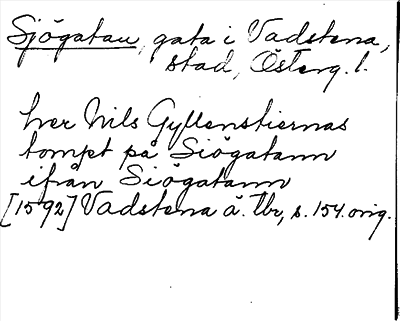 Sjögatan, gata i Vadstena,
stad, Österg. l.
her Nils Gyllenstiernas
tompt på Siögatann
ifrån Siögatann
[1592] Vadstena ä. Tbr, s. 154. orig.